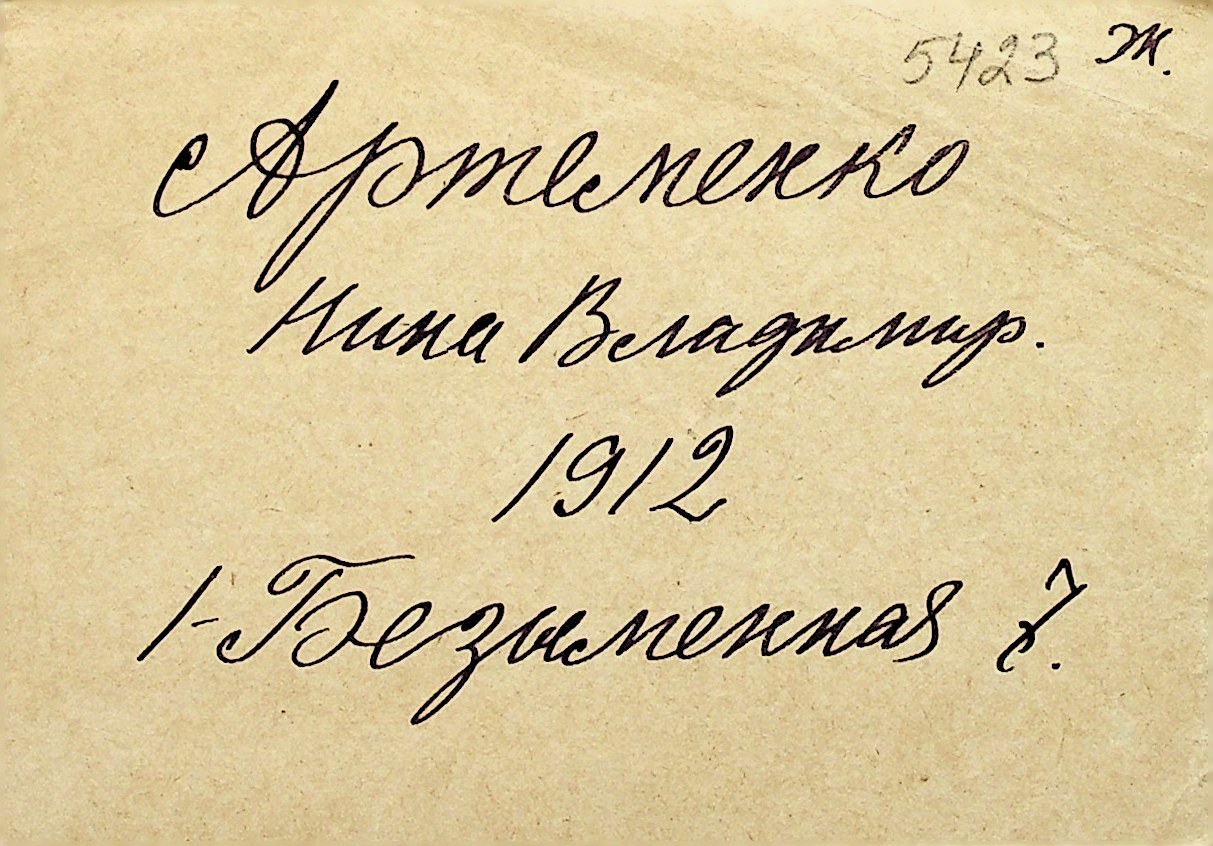 5423 Ж.
Артеменко
Нина Владимир.
1912
1-Безыменная 7.